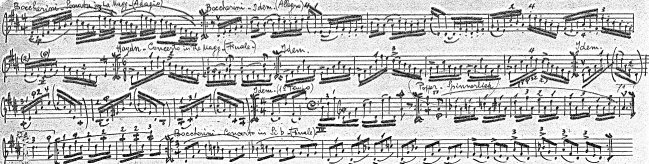 Boccherini - Sonata in La Magg. (Adagio) Boccherini - Idem. (Allegro)
Haydn - Concerto in Re Magg. (Finale) Idem. Idem.
Idem. (1º Tempo) Popper - Spinnerlied
Boccherini - Concerto in Si b (Finale)